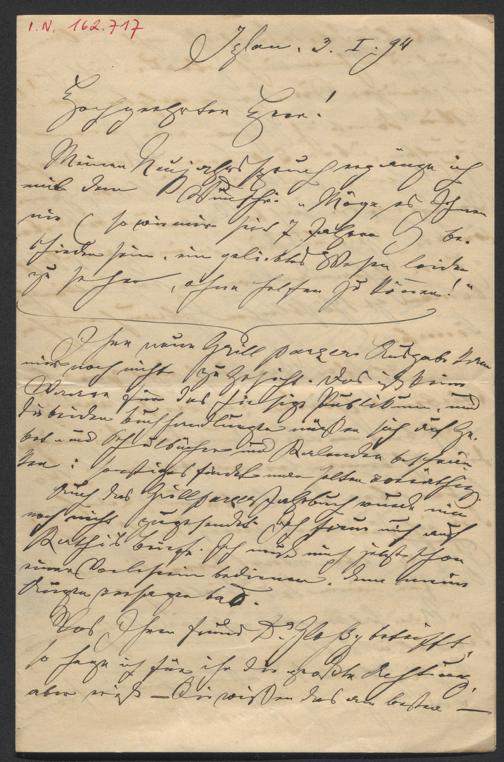 I.N. 162.717
Iglau. 3. I. 94
Hochgeehrter Herr!
Meinen Neujahrsspruch ergänze ich
mit dem Wunsche: „Möge es Ihnen
nie (so wie mir seit 7 Jahren) be-
schieden sein, ein geliebtes Wesen leiden
zu sehen, ohne helfen zu können!"
Ihre neue Grillparzer Ausgabe kam
mir noch nicht zu Gesicht. Das ist keine
Waare für das hiesige Publikum, und
die beiden Buchhandlungen müssen sich auf Ge-
bet- und Schulbücher und Kalender beschrän-
ken; sonstiges findet man selten vorräthig.
Auch das Grillparzer Jahrbuch wurde mir
noch nicht zugesendet. Ich freue mich auf
Ich muß mich jetzt schon
einer Vorleserin bedienen, denn meine
Augen versagen
Was Ihren Freund Dr. Glossy betrifft,
so hege ich für ihn die größte Achtung,
aber — Sie wissen das am besten —